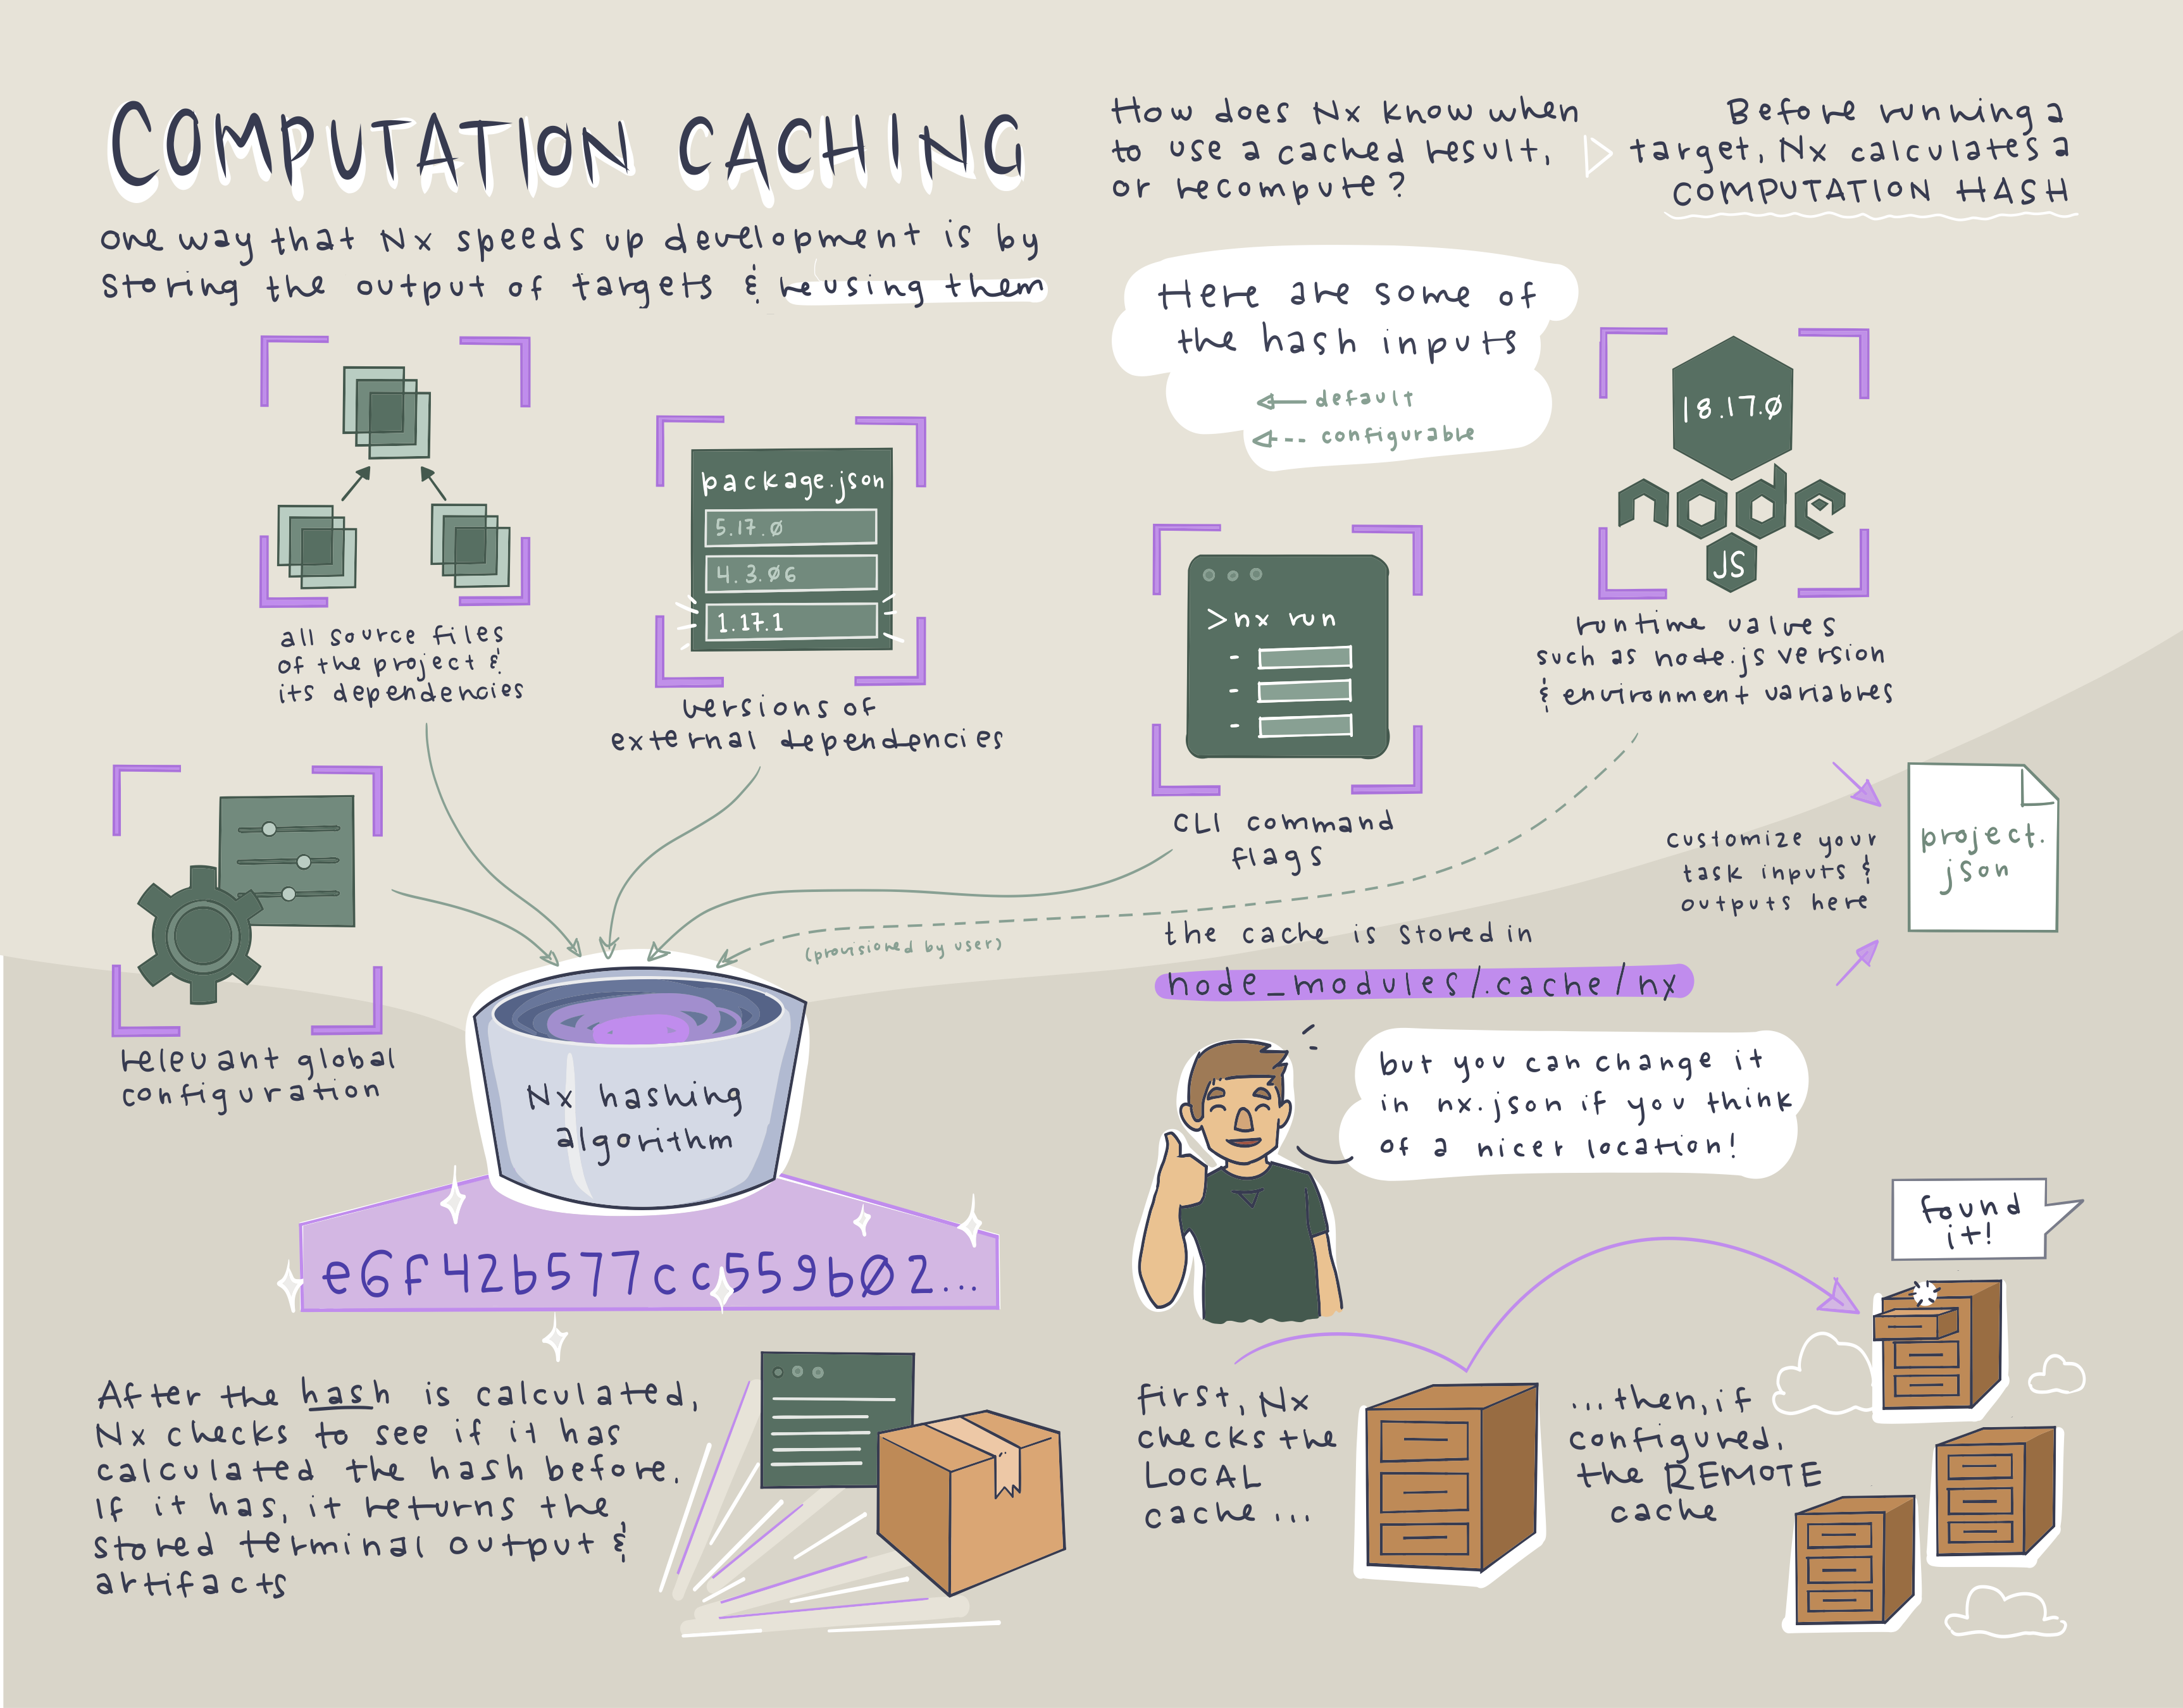 COMPUTATION CACHING
one way that Nx speeds up development is by
storing the output of targets & reusing them
How does Nx know when
to use a cached result,
or recompute?
Before running a
target, Nx calculates a
COMPUTATION HASH
Here are some of
the hash inputs
default
configurable
all source files
of the project &
its dependencies
package.json
5.17.0
4.3.06
1.17.1
versions of
external dependencies
>nx run
-
-
-
CLI command
flags
18.17.0
node
JS
runtime values
such as node.js version
& environment variabres
relevant global
configuration
(provisioned by user)
Nx hashing
algorithm
e6f42b577cc559b02...
customize your
task inputs &
outputs here
project.
json
the cache is stored in
node_modules/.cache/nx
but you can change it
in nx.json if you think
of a nicer location!
After the hash is calculated,
Nx checks to see if it has
calculated the hash before.
If it has, it returns the
stored terminal output &
artifacts
first, Nx
checks the
LOCAL
cache ...
...then, if
configured,
the REMOTE
cache
found
it!